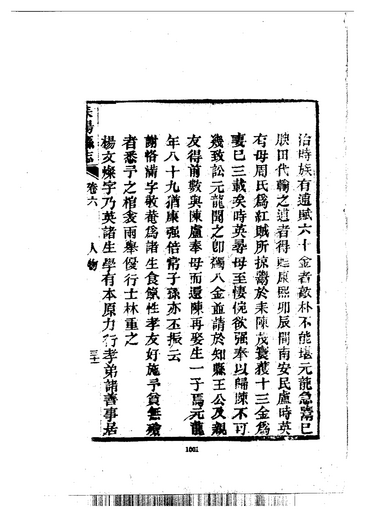 治時族有逋賦六十金者敲朴不能堪元龍急鬻已
腴田代輸之逋者得甦康熙卯辰間南安民盧時英
有母周氏為紅賊所掠鬻於耒陳茂寰獲十三金為
妻已三載矣時英尋母至悽俛欲强奉以歸陳不可
幾致訟元龍聞之卽獨八金並請於知縣王公及親
友得前數與陳盧奉母而還陳再娶生一子焉元龍
年八十九猶康强倍常子孫亦丕振云
謝恪滿字敬菴為諸生食餼性孝友好施予貧無殮
者悉予之棺衾兩舉優行士林重之
楊文燦字乃英諸生學有本原力行孝弟諸善事居
耒陽縣志
卷六
人物
1001